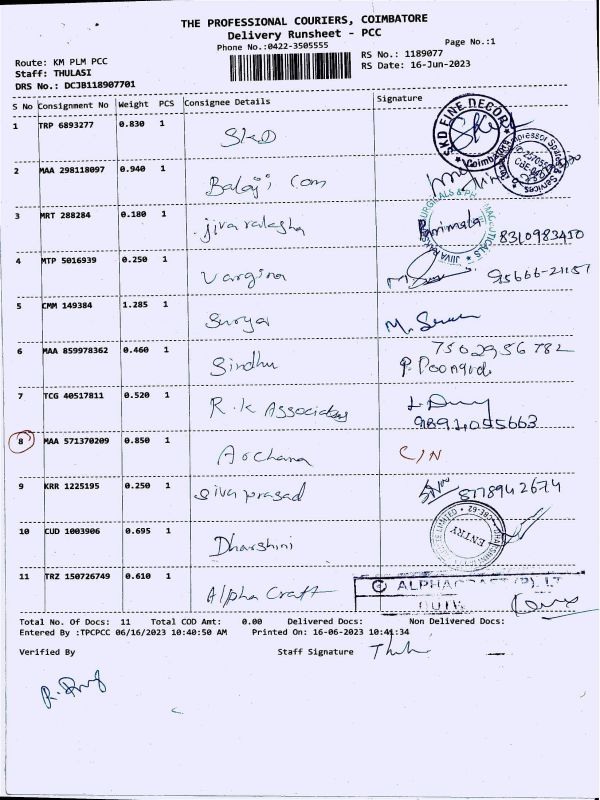 THE PROFESSIONAL COURIERS, COIMBATORE
Delivery Runsheet - PCC
Phone No.:0422-3505555
Page No.:1
Route: KM PLM PCC
Staff: THULASI
DRS No.: DCJB118907701
RS No.: 1189077
RS Date: 16-Jun-2023
S No Consignment No Weight PCS Consignee Details Signature
1 TRP 6893277 0.830 1 SKD
SKD FINE DECOR Coimbatore
2 MAA 298118097 0.940 1 Balaji Com
3 MRT 288284 0.180 1 jivaraksha Parimala 8310983450
4 MTP 5016939 0.250 1 Vargina 95666-21157
5 CMM 149384 1.285 1 Surya M.
6 MAA 859978362 0.460 1 Sindhu 7502956782
7 TCG 40517811 0.520 1 R.K Associates
8 MAA 571370209 0.850 1 Archana C/N
9 KRR 1225195 0.250 1 Sivaprasad 8778942674
10 CUD 1003906 0.695 1 Dharshini ENTRY
11 TRZ 150726749 0.610 1 Alpha Craft
Total No. Of Docs: 11 Total COD Amt: 0.00 Delivered Docs: Non Delivered Docs:
Entered By :TPCPCC 06/16/2023 10:40:50 AM Printed On: 16-06-2023 10:41:34
Verified By Staff Signature